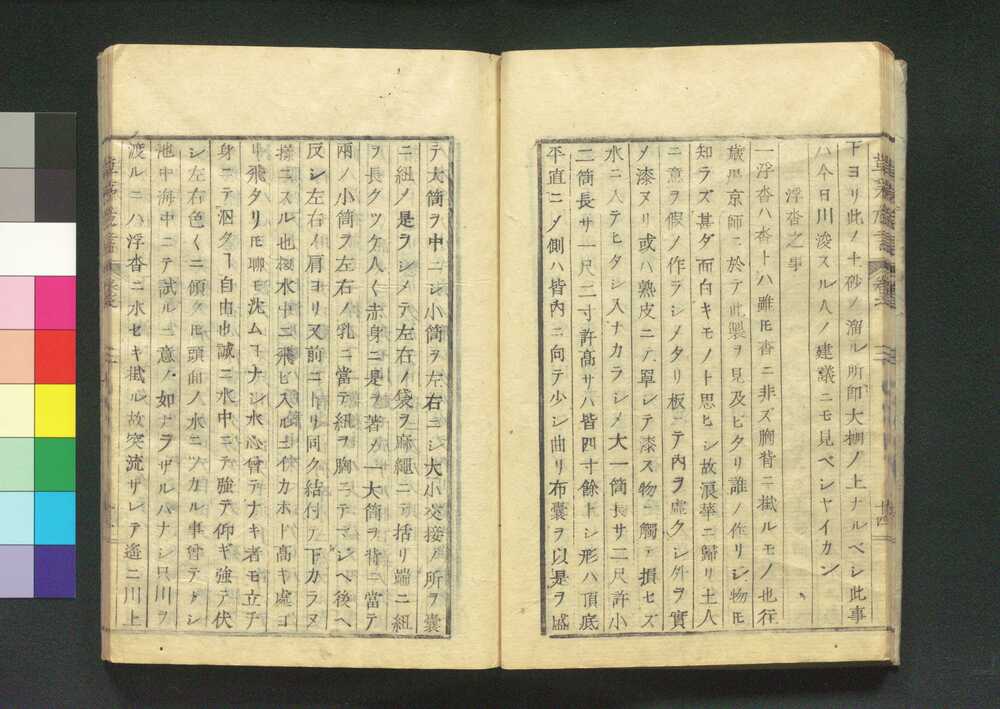 下ヨリ此ノ土砂ノ溜ル所即大樋ノ上ナルベシ此事
ハ今日川浚スル人ノ建議ニモ見ベシヤイカン
浮沓之事
一浮沓ハ沓トハ雖モ沓ニ非ズ胸背ニ掛ルモノ也行
歳世京師ニ於テ此製ヲ見及ビタリ誰ノ作リシ物モ
知ラズ甚ダ面白キモノト思ヒシ故浪華ニ歸リ土人
ニ意ヲ假ノ作ラシメタリ板ニテ内ヲ虚クシ外ヲ實
メ漆ヌリ或ハ熟皮ニノ單シテ漆ス物ニ觸テ損セズ
水ニ入テヒタシ入ナカラシメ大一筒長サ二尺許小
二筒長サ一尺二寸許高サハ皆四寸餘トシ形ハ頂底
平直ニノ側ハ皆内ニ向テ少シ曲リ布囊ヲ以是ヲ盛
テ大筒ヲ中ニシ小筒ヲ左右ニシ大小交接ノ所ヲ囊
ニ紐ノ是ヲシメテ左右ノ袋ヲ麻繩ニテ括リ端ニ紐
ヲ長クツケ人く赤身ニ是ヲ著メ一大筒ヲ背ニ當テ
兩ノ小筒ヲ左右ノ乳ニ當テ紐ヲ胸ニテマジヘ後ヘ
反シ左右ノ肩ヨリ又前ニトリ同ク結付テ下カラヌ
樣ニスル也扨水中ニ飛ビ入ルニ何カホド高キ處ゴ
リ飛タリモ聊モ沈ムヿナシ水心曾テナキ者モ立チ
身ニテ泅グヿ自由也誠ニ水中ニテ強テ仰ギ強テ伏
シ左右色くニ傾クモ頭面ノ水ニツカル事曾テナシ
池中海中ニテ試ルニ意ノ如ナラザルハナシ只川ヲ
渡ルニハ浮沓ニ水セキ掛ル故突流サレテ遙ニ川上